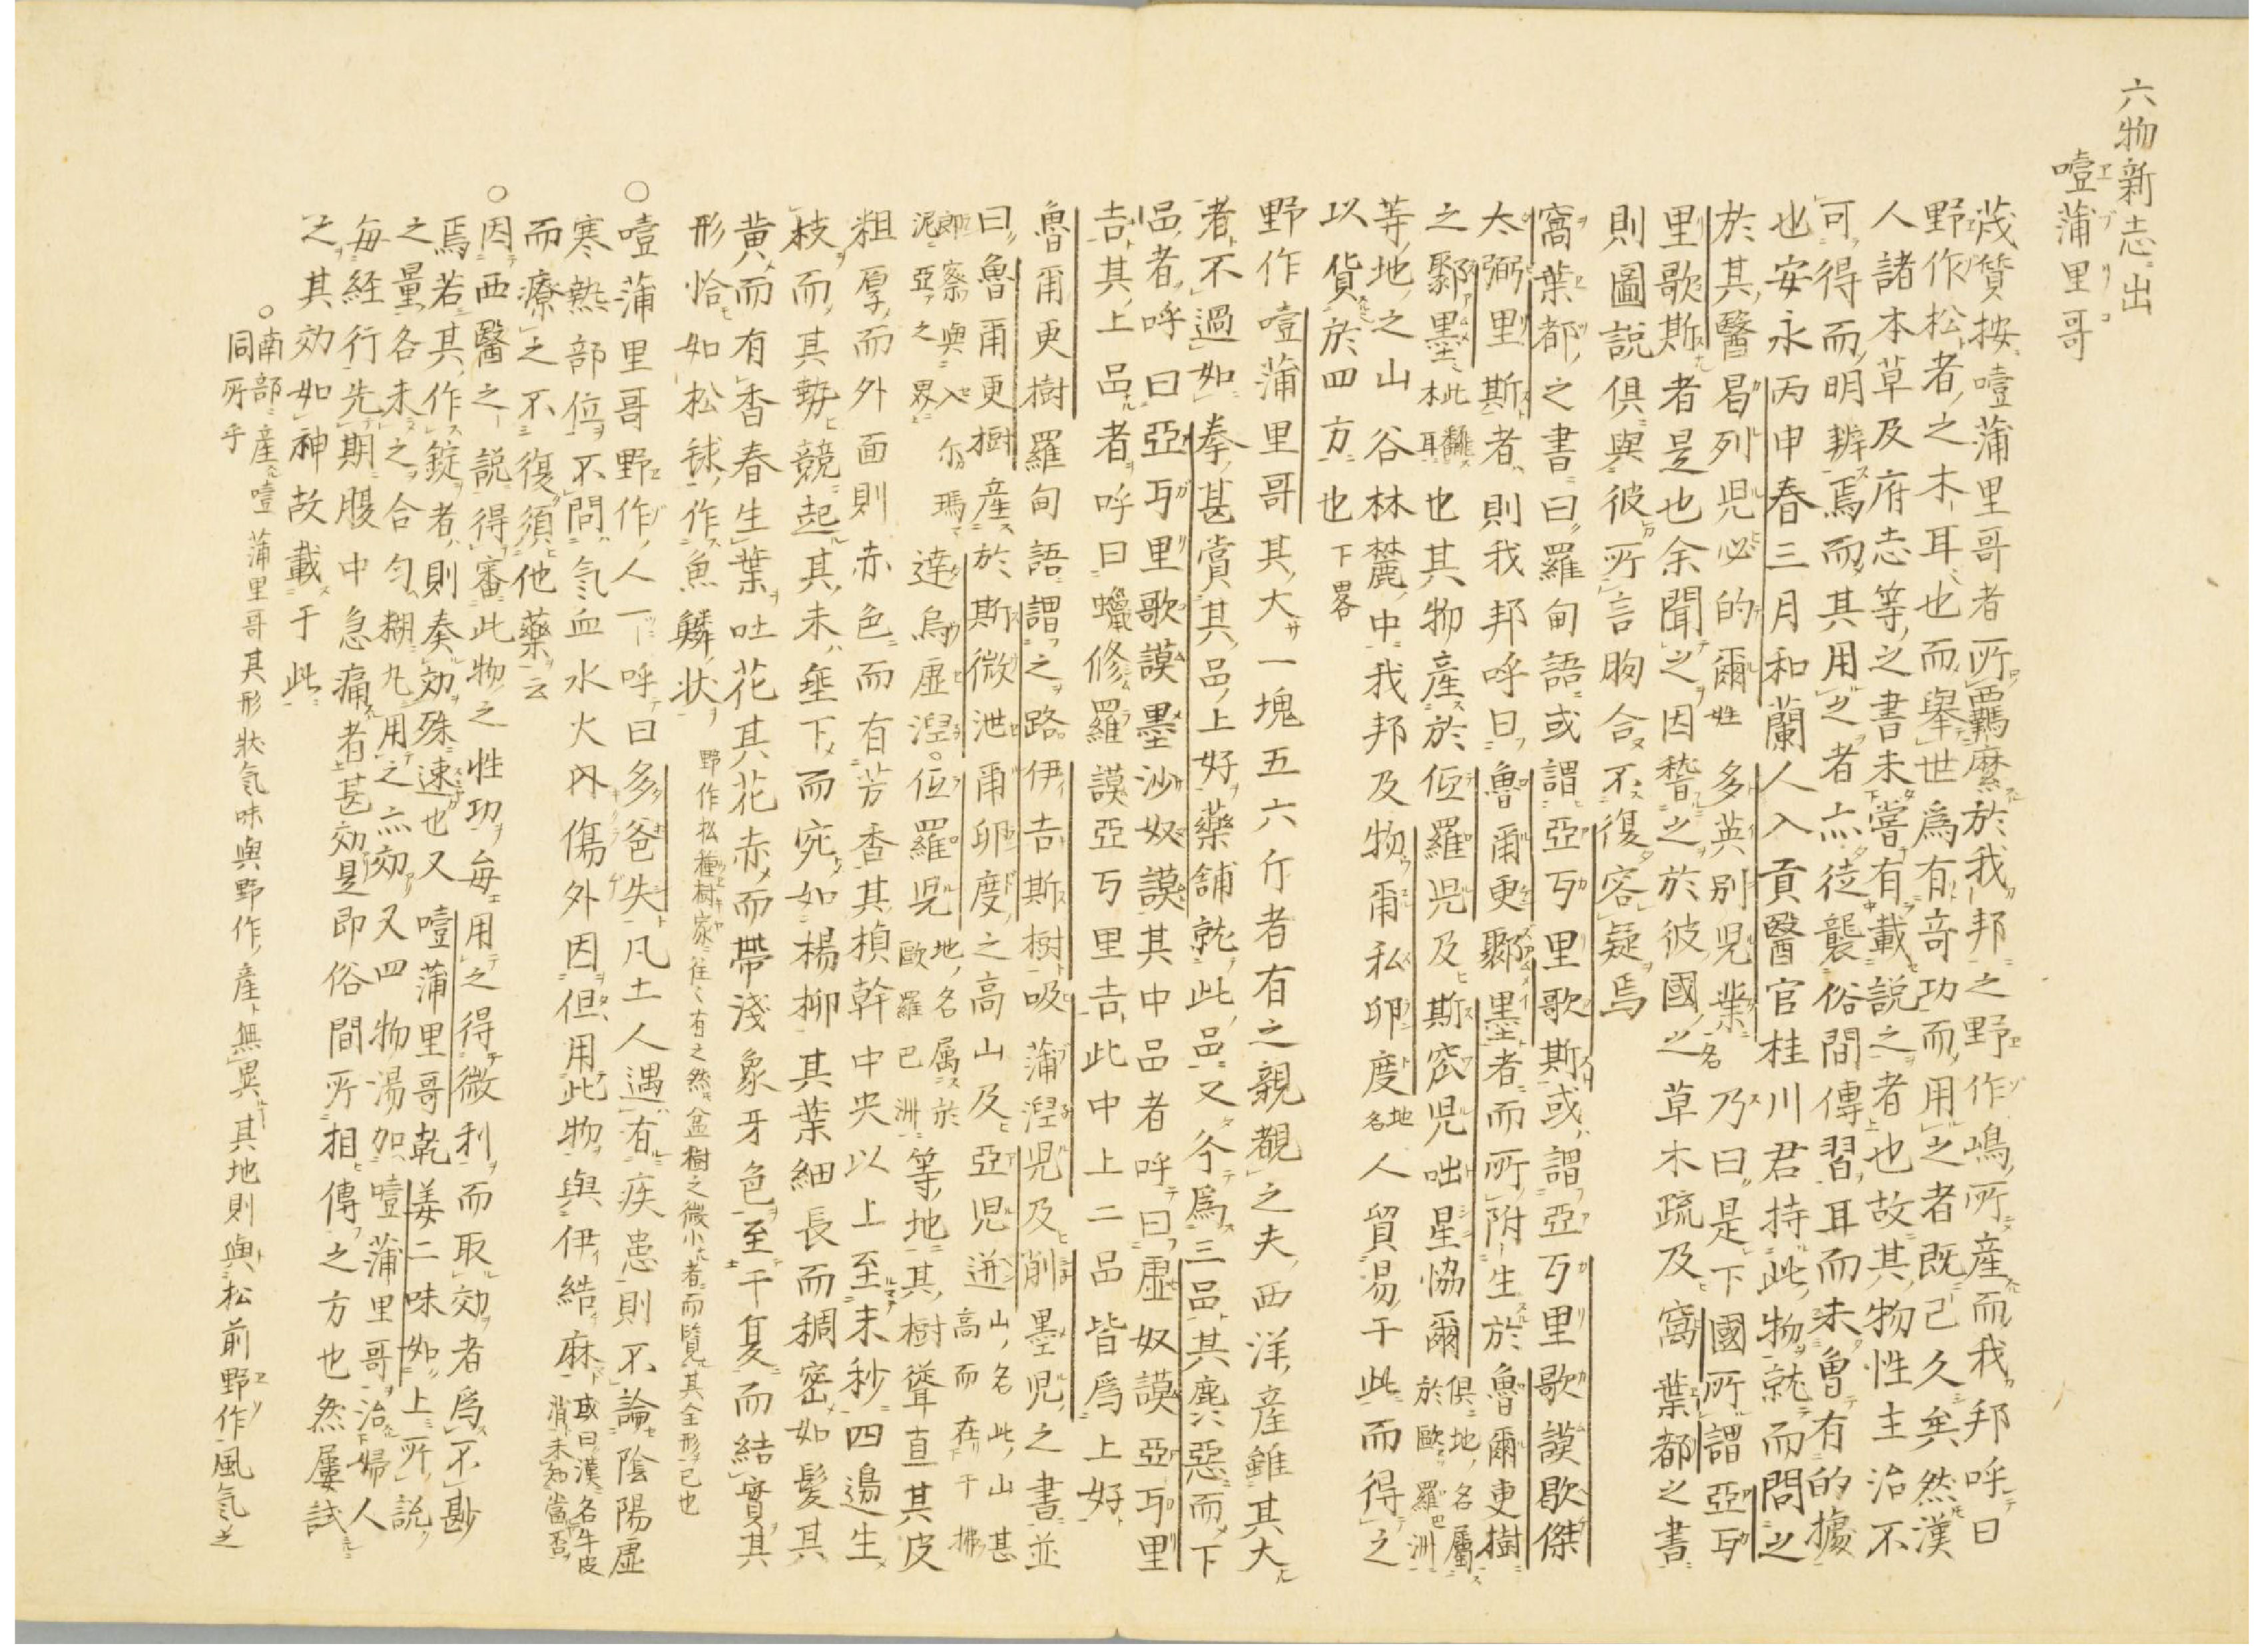 六物新志ニ出
噎蒲里哥
茂質按噎蒲里哥者所羈縻於我邦之野作嶋所産而我邦呼曰
野作松者之木耳也而舉世爲有竒功而用之者既已久矣然漢
人諸本草及府志等之書未嘗有載説之者也故其物性主治不
可得而明辨焉而其用之者亦徒襲俗間傳習耳而未曽有的據
也安永丙申春三月和蘭人入貢醫官桂川君持此物就而問之
於其醫曷列児必的爾姓多英別児葉名乃曰是下國所謂亞瓦
里歌斯者是也余聞之因稽之於彼國之草木疏及窩葉都之書
則圖説倶與彼所言脗合不復容疑焉
窩葉都之書曰羅甸語或謂亞瓦里歌斯或謂亞瓦里歌謨歇傑
太弼里斯者則我邦呼曰魯爾更鄹墨者而所附生於魯爾更樹
之鄹墨此翻木耳也其物産於佢羅児及斯窓児咄星協爾倶地名屬於歐羅巴洲
等地之山谷林麓中我邦及物爾私卯度地名人貿易于此而得之
以貨於四方也下畧
野作噎蒲里哥其大一塊五六斤者有之親覩之夫西洋産雖其大
者不過如拳甚賞其品上好藥舗就此品又今爲三品其麁惡而下
品者呼曰亞瓦里歌謨墨沙奴謨其中品者呼曰虚奴謨亞瓦里
吉其上品者呼曰蠟修羅謨亞瓦里吉此中上二品皆爲上好
魯爾更樹羅甸語謂之路伊吉斯樹吸蒲涅児及削墨児之書並
曰魯爾更樹産於斯微泄爾卯度之高山及亞児迸山名此山甚高而在于拂
郎察與入尓瑪泥亞之界達烏虚涅佢羅児地名属於歐羅巴洲等地其樹聳直其皮
粗厚而外面則赤色而有芳香其楨幹中央以上至末秒四邉生
枝而其勢競起其末垂下而宛如楊柳其葉細長而稠密如髪其
黄而有香春生葉吐花其花赤而帶淺象牙色至于夏而結實其
形恰如松毬作魚鱗状野作松種樹家往々有之然盆樹之微小者而覽其全形已也
○噎蒲里哥野作人一呼曰多爸失凡土人遇有疾患則不論陰陽虚
寒熱部位不問氣血水火内傷外因但用此物與伊絬麻或曰漢名牛皮消未知當否
而療之不復須他藥云
○因西醫之説得審此物之性功毎用之得微利而取効者爲不尠
焉若其作錠者則奏効殊速也又噎蒲里哥乾姜二味如上所説
之量各末之合匀糊丸用之亦効又四物湯加噎蒲里哥治婦人
毎経行先期腹中急痛者甚効是即俗間所相傳之方也然屢試
之其効如神故載于此
○南部ニ産噎蒲里哥其形状氣味與野作産無異其地則與松前野作風氣之
同所乎